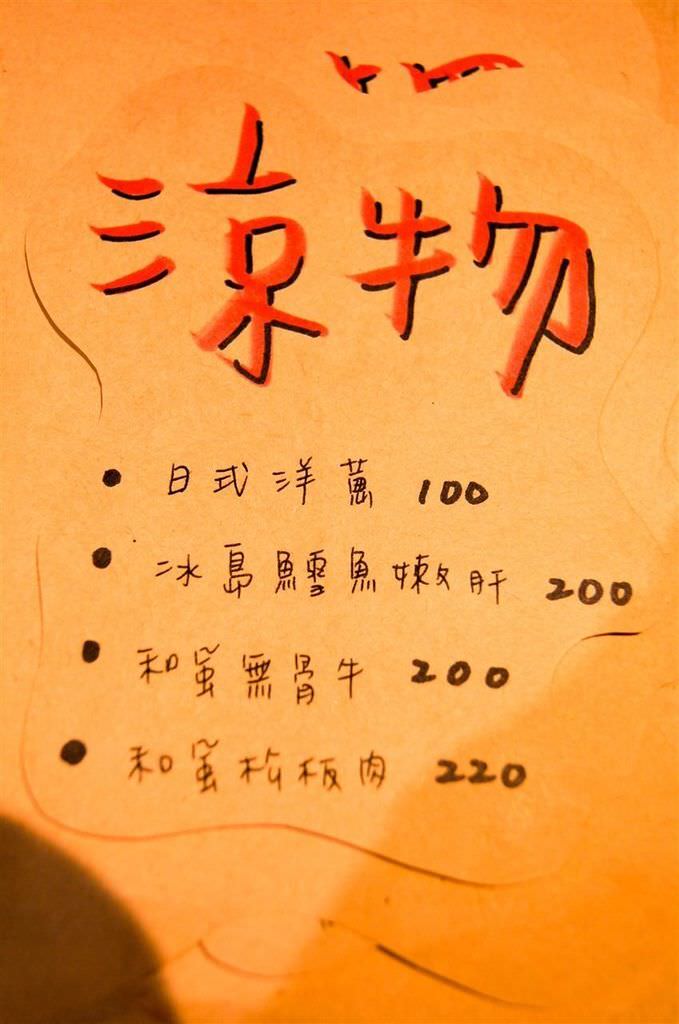 涼物
日式洋蔥 100
冰島鱈魚嫩肝 200
和蛋無骨牛 200
和蛋松板肉 220